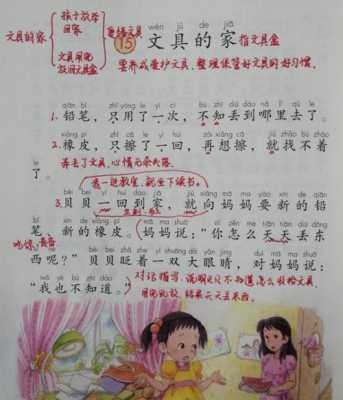 文具的家
孩子放学
回家
文具用完
放回文具盒
爱护文具
wén jù de jiā
15 文具的家 指文具盒
要养成爱护文具、整理保管好文具的好习惯。
qiān bǐ zhǐ yòng le yí cì bù zhī diū dào nǎ lǐ qù le
1. 铅笔，只用了一次，不知丢到哪里去了。
xiàng pí zhǐ cā le yì huí zài xiǎng cā jiù zhǎo bù zháo
2. 橡皮，只擦了一回，再想擦，就找不着
le
了。
弄丢了文具，心情
一进教室，就坐下读书。
bèi bei yì huí dào jiā jiù xiàng mā ma yào xīn de qiān
3. 贝贝一回到家，就向妈妈要新的铅
bǐ xīn de xiàng pí mā ma shuō nǐ zěn me tiān tiān diū dōng
笔 新的橡皮。妈妈说：“你怎么天天丢东
xī ne bèi bei zhǎ zhe yì shuāng dà yǎn jing duì mā ma shuō
西呢？”贝贝眨着一双大眼睛，对妈妈说：
wǒ yě bù zhī dào
“我也不知道。”
对话描写，说明贝贝不知道怎么收拾文具，